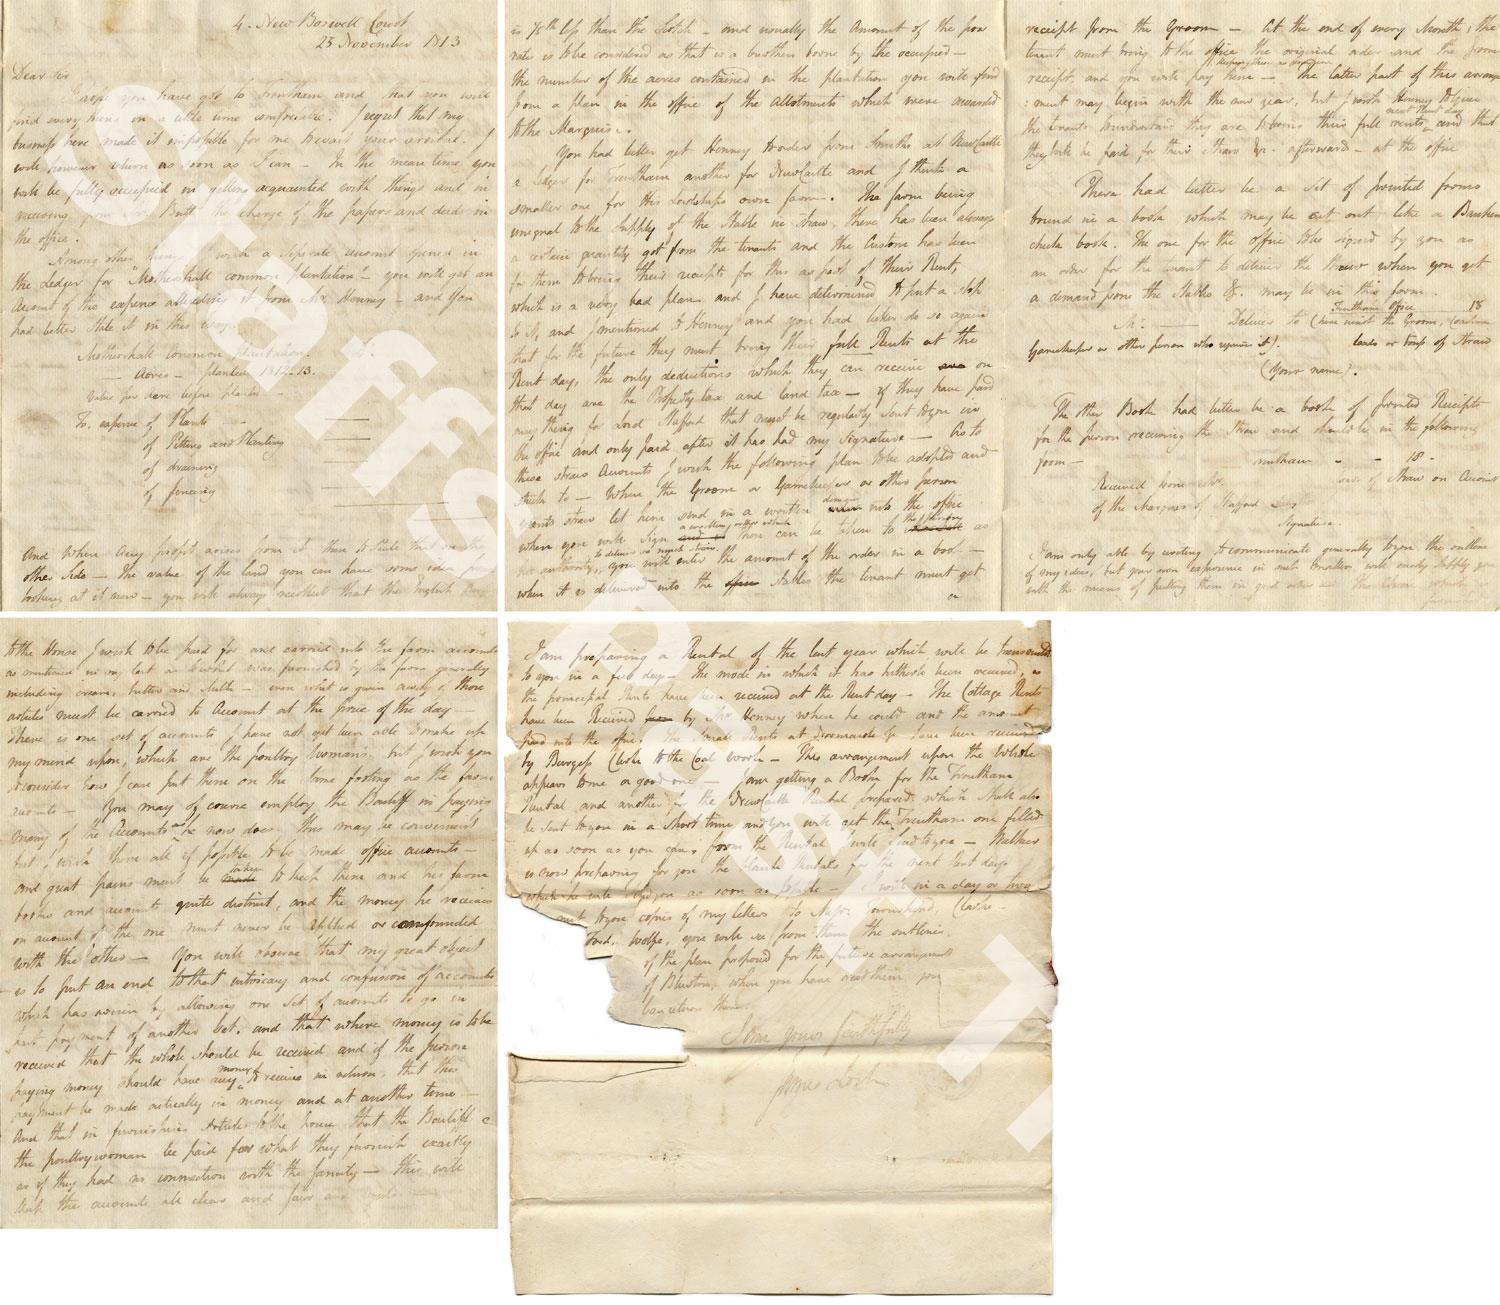 4. New Boswell Court
25 November 1813
Dear Sir
I hope you have got to Trentham and that you will
find every thing in a little time comfortable. I regret that my
business here made it impossible for me to await your arrival. I
will however return as soon as I can - In the mean time you
will be fully occupied in getting acquainted with things and in
receiving from Mr Butt the charge of the papers and deeds in
the office.
Among other things I wish a separate account opened in
the Ledger for "Mothershall common plantation" - you will get an
account of the expence attending it from Mr Henney - and you
had better state it in this way.
Mothershall Common plantation.
- Acres - planted 1812-13.
Value per acre before planted -
To. expence of Plants -
of Pitting and Planting
of draining
of fencing
And where any profit arises from it then to state that on the
other side - The value of the land you can have some idea from
looking at it now - you will always recollect that the English
is 1/5th less than the Scotch - and usually the amount of the poor
rate is to be considered as that is a burthen borne by the occupied -
the number of the acres contained in the plantation you will find
from a plan in the office of the allotments which were awarded
to the Marquis.
You had better get Henney to order from Smiths at NewCastle
a Ledger for Trentham another for NewCastle and I think a
smaller one for his Lordships own farm. The farm being
unequal to the supply of the Stable in Straw, there has been always
a certain quantity got from the tenants and the Custom has been
for them to bring their receipts for this as part of their Rent,
which is a very bad plan and I have determined to put a stop
to it, and I mentioned to Henney and you had better do so again
that for the future they must bring their full Rents at the
Rent day, the only deductions which they can receive on
that day are the Property tax and land tax - if they have paid
any thing for Lord Stafford that must be regularly sent to you in
the office and only paid after it has had my signature - As to
these straw Accounts I wish the following plan to be adopted and
stuck to - When the Groom or Gamekeeper or other person
wants straw let him send in a written demand into the office
when you will sign a written order which then can be taken to the farmer as
his authority, to deliver so much straw, you will enter the amount of the order in a book -
when it is delivered into the office Stables the tenant must get
a
receipt from the Groom - At the end of every Month, the
tenant must bring to the office the original order and the grooms
receipt, and you will pay him - The latter part of this arrange
:ment may begin with the new year, but I wish Henney to give
the tenants to understand they are to bring their full rents next Rent day and that
they will be paid for their straw &c. afterwards - at the office
There had better be a set of printed forms
bound in a book which may be cut out like a Bankers
check book. The one for the office to be signed by you as
an order for the tenant to deliver the straw when you get
a demand from the Stables &c. may be in this form.
Trentham Office 18
Mr. - Deliver to (here insert the Groom, Gardiner
Gamekeeper or other person who require it). loads or tons of Straw
(Your name).
The other Book had better be a book of printed Receipts
for the person receiving the straw and should be in the following
form -
Trentham - - 18 -
Received from Mr. loads of Straw on Account
of the Marquis of Stafford
Signature.
I am only able by writing to communicate generally to you the outline
of my ideas, but your own experience in such matters will easily supply you
with the means of putting them in good order -
to the House I wish to be paid for and carried into the farm accounts
as mentioned in my last as to what was furnished by the farm generally
including cream, butter and milk - even what is given away of those
articles must be carried to Account at the price of the day -
There is one set of accounts I have not yet been able to make up
my mind upon, which are the poultry womans, but I wish you
to consider how I can put them on the same footing as the farm
accounts - You may of course employ the Bailiff in paying
many of the Accounts as he now does. This may be convenient
but I wish them all if possible to be made office accounts -
and great pains must be taken to keep them and his farm
books and accounts quite distinct, and the money he receives
on account of the one must never be applied or compounded
with the other - You will observe that my great object
is to put an end to that intricacy and confusion of accounts
which has arisen by allowing one set of accounts to go in
part payment of another set, and that where money is to be
received that the whole should be received and if the person
paying money should have any money to receive in return, that this
payment be made actually in money and at another time -
And that in furnishing articles to the house that the Bailiff &
the poultrywoman be paid for what they furnish exactly
as if they had no connection with the family - this will
keep the accounts all clear and fair and
I am preparing a Rental of the last year which will be transmitted
to you in a few days - The mode in which it has hitherto been received, is
the principal Rents have been received at the Rent day - The Cottage Rents
have been Received by Mr. Henney when he could and the amount
paid into the office. The small Rents at &c have been received
by Burgess Clerk to the Coal Work - This arrangement upon the whole
appears to me a good one - I am getting a Book for the Trentham
Rental and another for the NewCastle Rental prepared which shall also
be sent to you in a short time and you will get the Trentham one filled
up as soon as you can; from the Rental I will send to you - Walker
is now preparing for you the blank Rentals for the next Rent days
which he will send you as soon as possible - I will in a day or two
to you copies of my letters to Major Townshend, Clarke -
Ford, Wolfe, you will see from them the outlines
of the plan proposed for the future arrangement
of Blurton, when you have read them you
can return them.
I am yours faithfully
James Loch
Staffs Past T